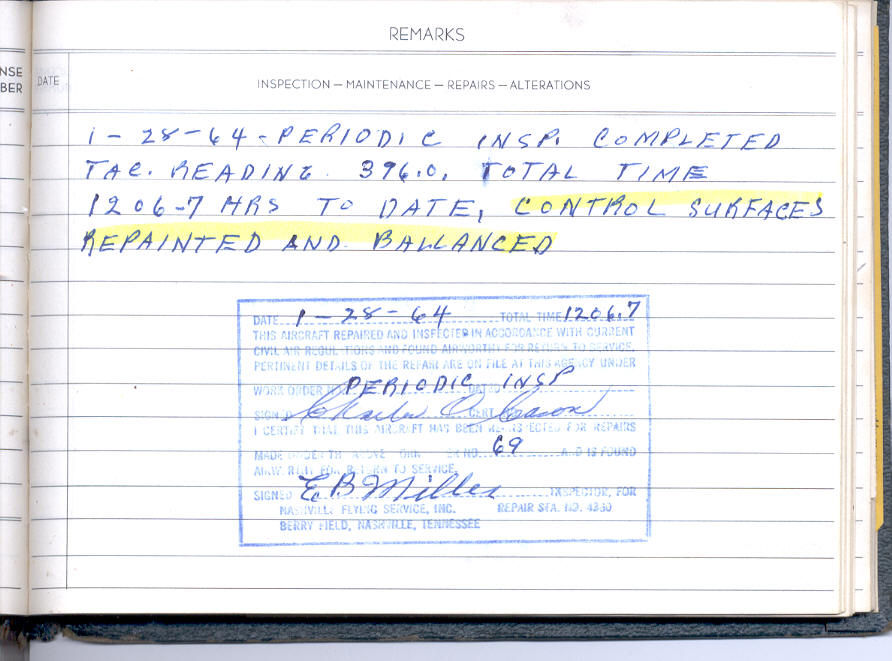 REMARKS
NSE
BER
DATE
INSPECTION — MAINTENANCE — REPAIRS — ALTERATIONS
1-28-64-PERIODIC INSP. COMPLETED
TAC. READING 396.0, TOTAL TIME
1206-7 HRS TO DATE, CONTROL SURFACES
REPAINTED AND BALLANCED
DATE 1-28-64 TOTAL TIME 1206.7
THIS AIRCRAFT REPAIRED AND INSPECTED IN ACCORDANCE WITH CURRENT
CIVIL AIR REGULATIONS AND FOUND AIRWORTHY FOR RETURN TO SERVICE.
PERTINENT DETAILS OF THE REPAIR ARE ON FILE AT THIS AGENCY UNDER
WORK ORDER PERIODIC INSP
SIGNED Charles CERT
I CERTIFY THAT THIS AIRCRAFT HAS BEEN FOR REPAIRS
MADE UNDER NO. 69 AND IS FOUND
FOR RETURN TO SERVICE.
SIGNED E B Miller INSPECTOR, FOR
NASHVILLE FLYING SERVICE, INC. REPAIR STA. NO.
BERRY FIELD, NASHVILLE, TENNESSEE